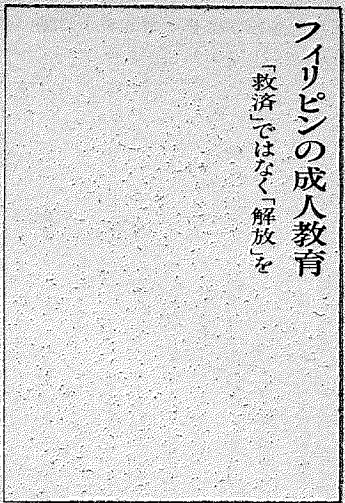 フィリピンの成人教育
「救済」ではなく「解放」を